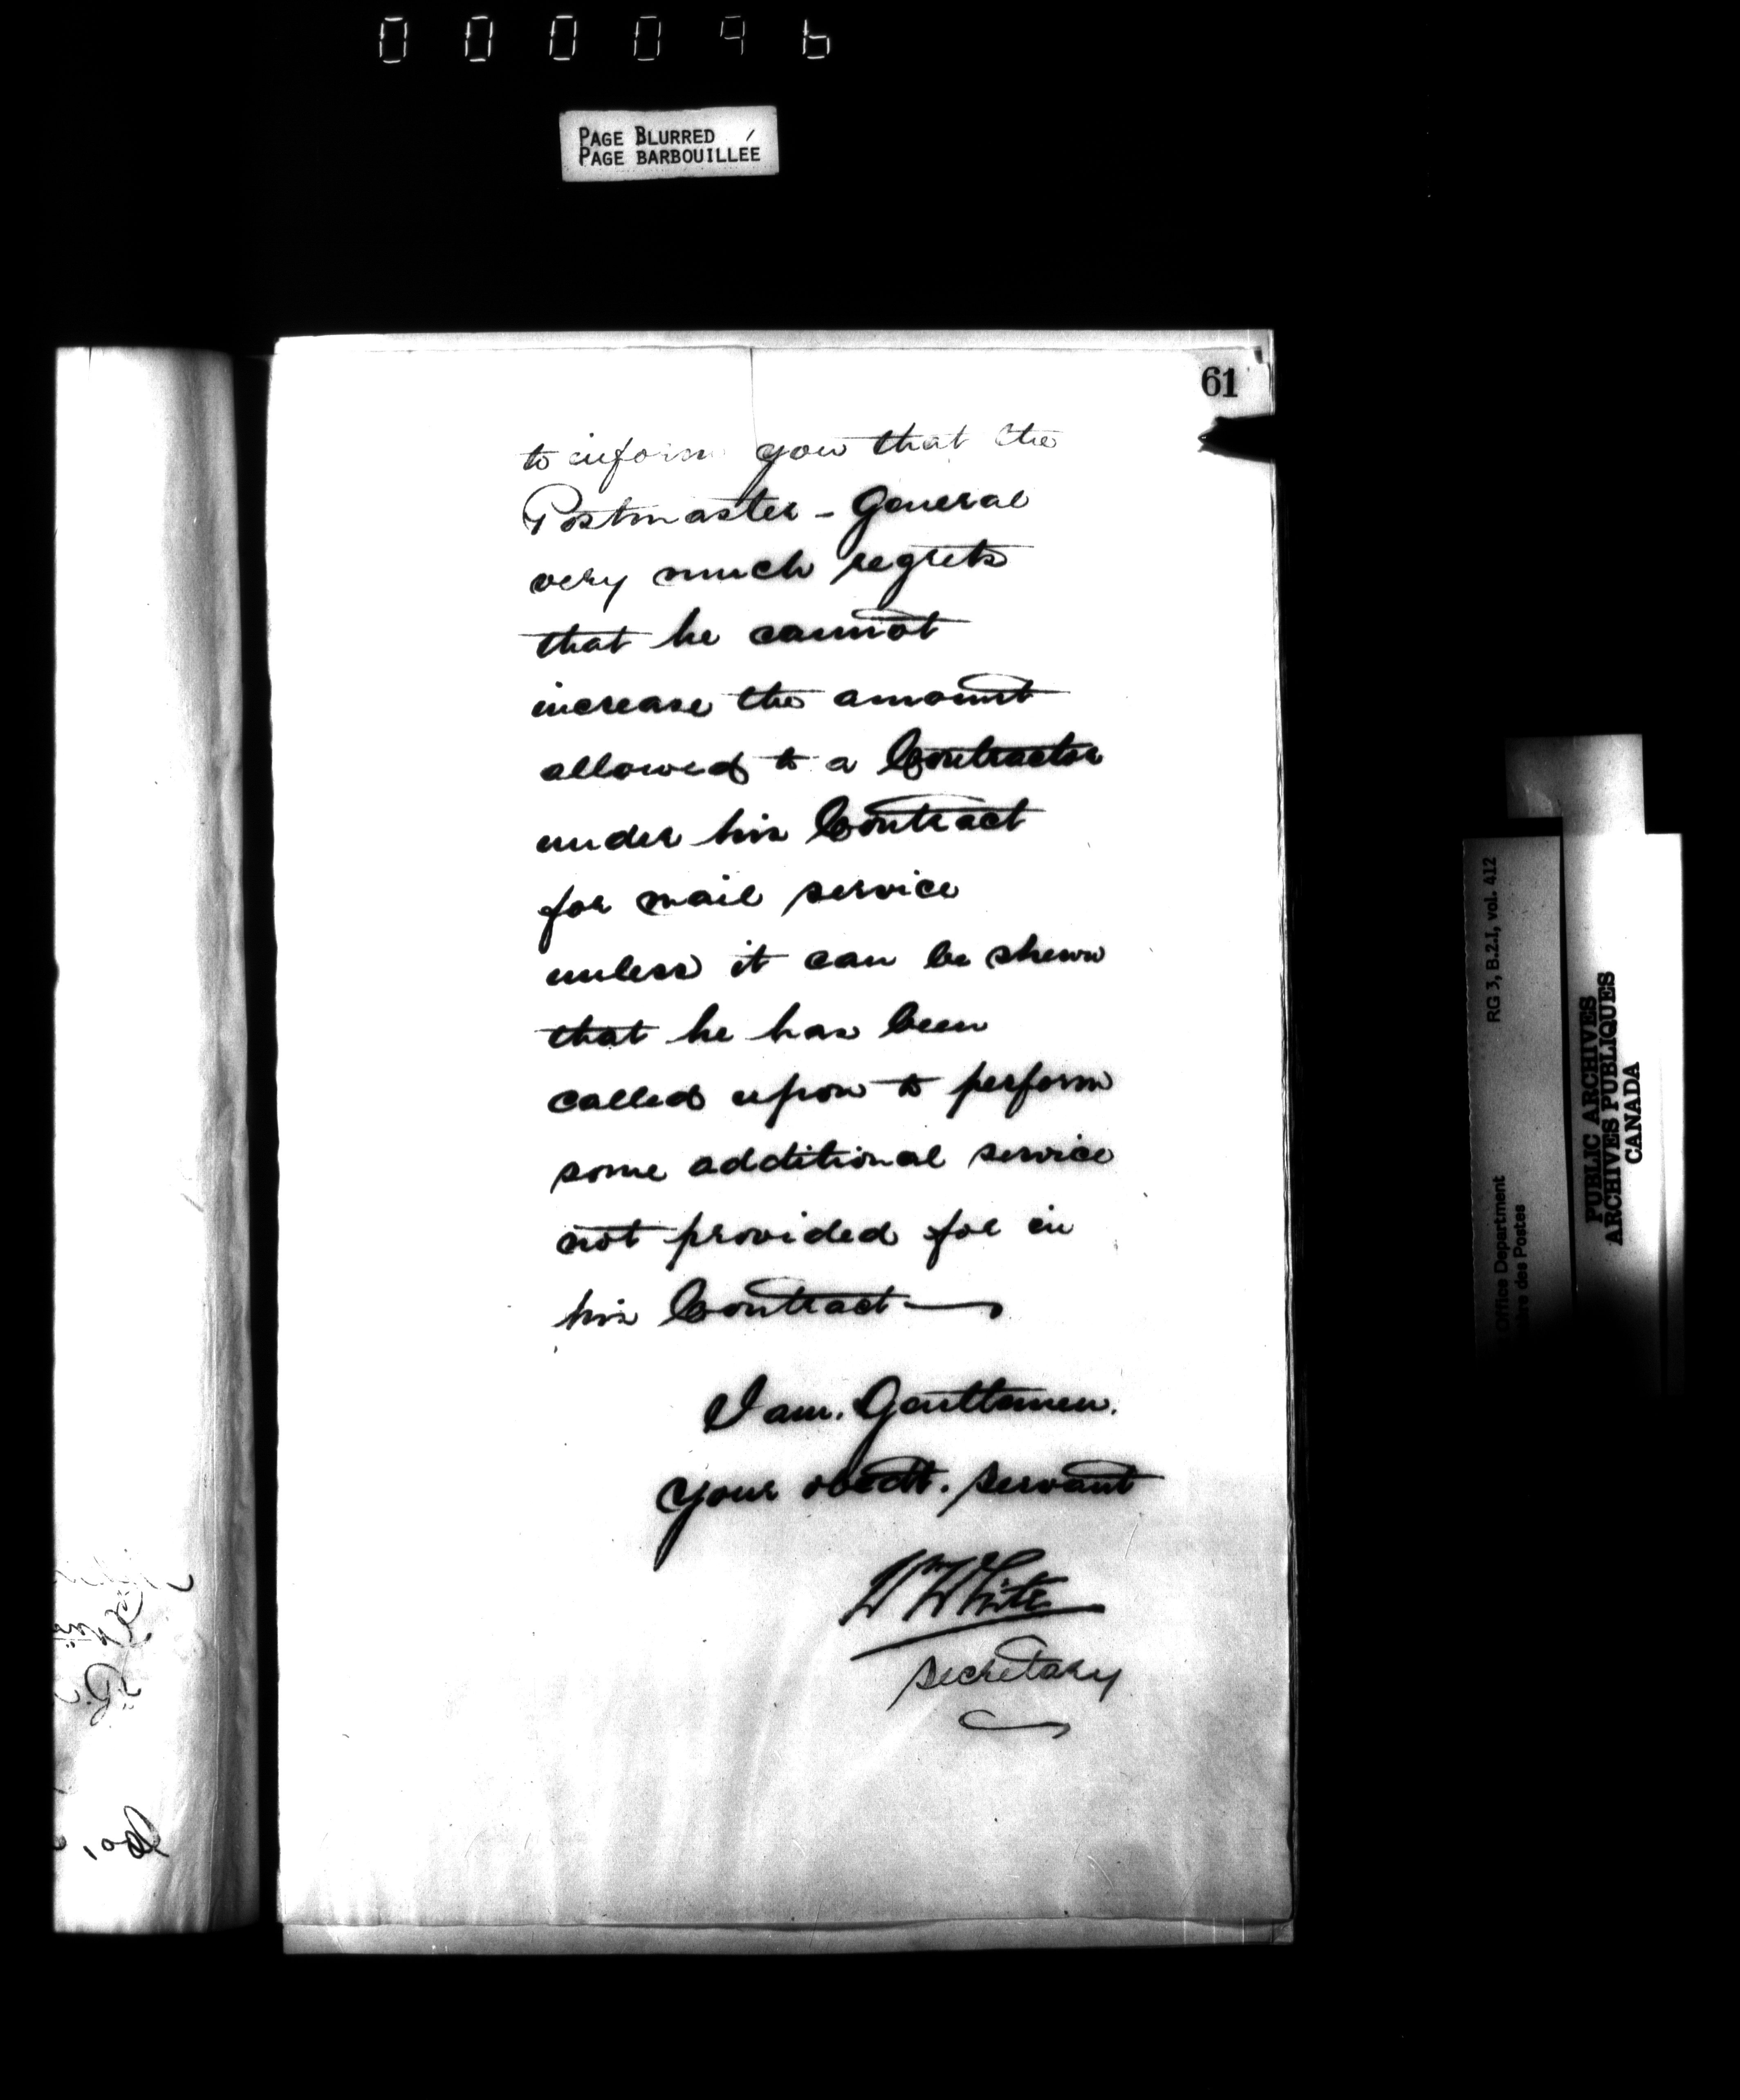 000096
PAGE BLURRED
PAGE BARBOUILLÉE
61
to inform you that the
Postmaster - General
very much regrets
that he cannot
increase the amount
allowed to a Contractor
under his Contract
for mail service
unless it can be shewn
that he has been
called upon to perform
some additional service
not provided for in
his Contract
I am. Gentlemen.
Your obedt. servant
W White
Secretary
RG 3, B.2.I, vol. 412
Office Department
des Postes
PUBLIC ARCHIVES
ARCHIVES PUBLIQUES
CANADA